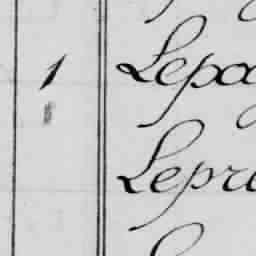 1 Lepo
Lepr